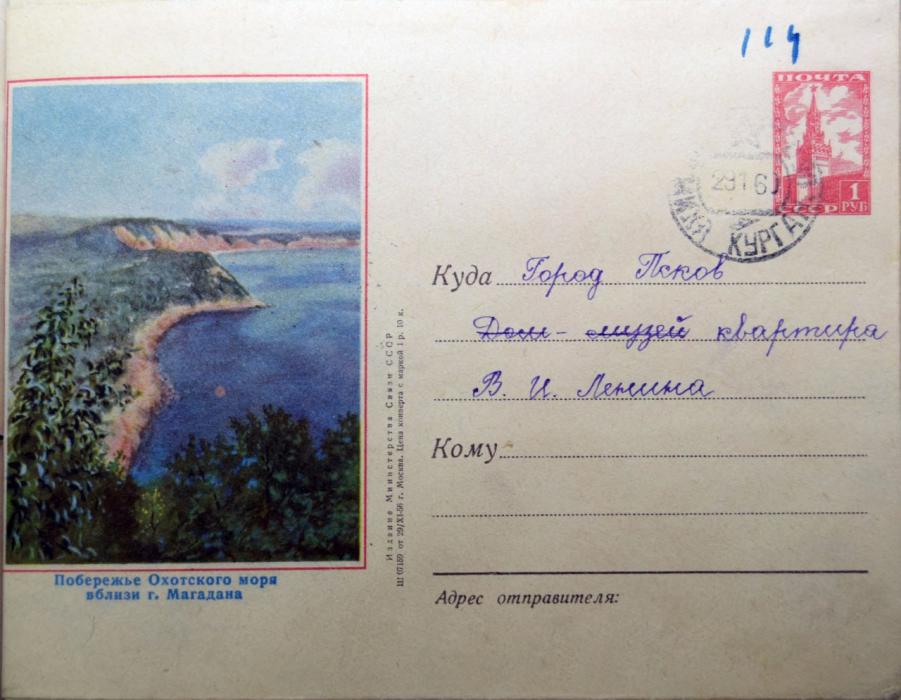 114
ПОЧТА
1
РУБ
СССР
29 1 60
КУРГАН
Куда Город Псков
Дом - музей квартира
В. И. Ленина
Кому
Адрес отправителя:
Издание Министерства Связи СССР
Ш 07189 от 29/XI-56 г. Москва. Цена конверта с маркой 1 р. 10 к.
Побережье Охотского моря
вблизи г. Магадана